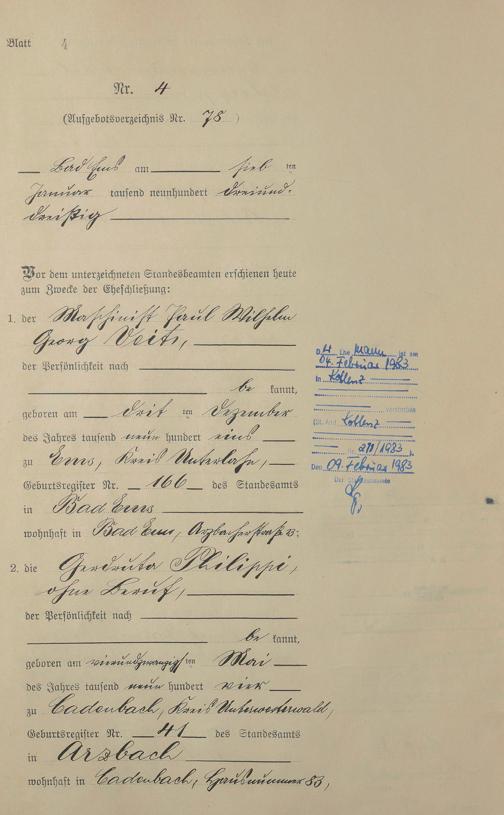 Blatt 4
Nr. 4
(Aufgebotsverzeichnis Nr. 78)
Bad Ems am sieb ten
Januar tausend neunhundert dreiund-
dreißig
Vor dem unterzeichneten Standesbeamten erschienen heute
zum Zwecke der Eheschließung:
1. der Maschinist Paul Wilhelm
Georg Voits,
der Persönlichkeit nach
be kannt,
geboren am drit ten Dezember
des Jahres tausend neun hundert eins
zu Ems, Kreis Unterlahn,
Geburtsregister Nr. 166 des Standesamts
in Bad Ems
wohnhaft in Bad Ems, Arzbacherstraße
2. die Gerdruta Philippi,
ohne Beruf,
der Persönlichkeit nach
be kannt,
geboren am vierundzwanzigs ten Mai
des Jahres tausend neun hundert vier
zu Cadenbach, Kreis Unterwesterwald,
Geburtsregister Nr. 41 des Standesamts
in Arzbach
wohnhaft in Cadenbach, Hausnummer 83,
D. Ehe mann ist am
04. Februar 1983
in Koblenz
verstorben
(St. Amt Koblenz
Nr. 271/1983).
Den 09. Februar 1983
Der Standesbeamte